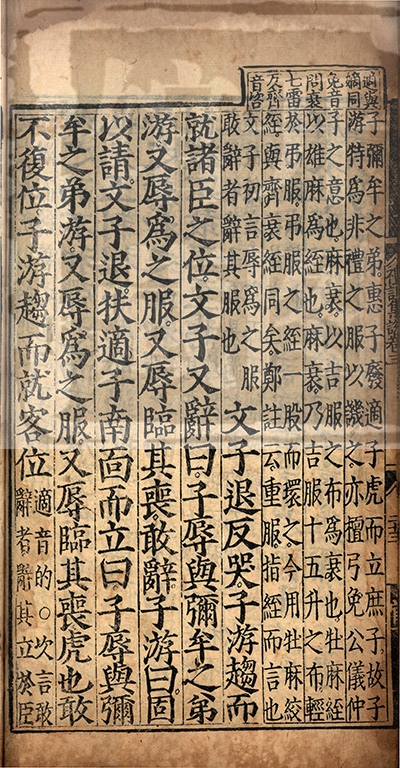 適與
嫡同
免音
問衰
七雷
反齊
音咨
子彌牟之弟惠子廢適子虎而立庶子故子
游特為非禮之服以譏之亦檀弓免公儀仲
子之意也麻衰以吉服之布為衰也牡麻絰
以雄麻為絰也麻衰乃吉服十五升之布輕
於弔服弔服之絰一股而環之今用牡麻絞
絰與齊衰絰同矣鄭註云重服指絰而言也
文子初言辱為之服
敢辭者辭其服也
文子退反哭子游趨而
就諸臣之位文子又辭曰子辱與彌牟之弟
游又辱為之服又辱臨其喪敢辭子游曰固
以請文子退扶適子南面而立曰子辱與彌
牟之弟游又辱為之服又辱臨其喪虎也敢
不復位子游趨而就客位
適音的○次言敢
辭者辭其立於臣